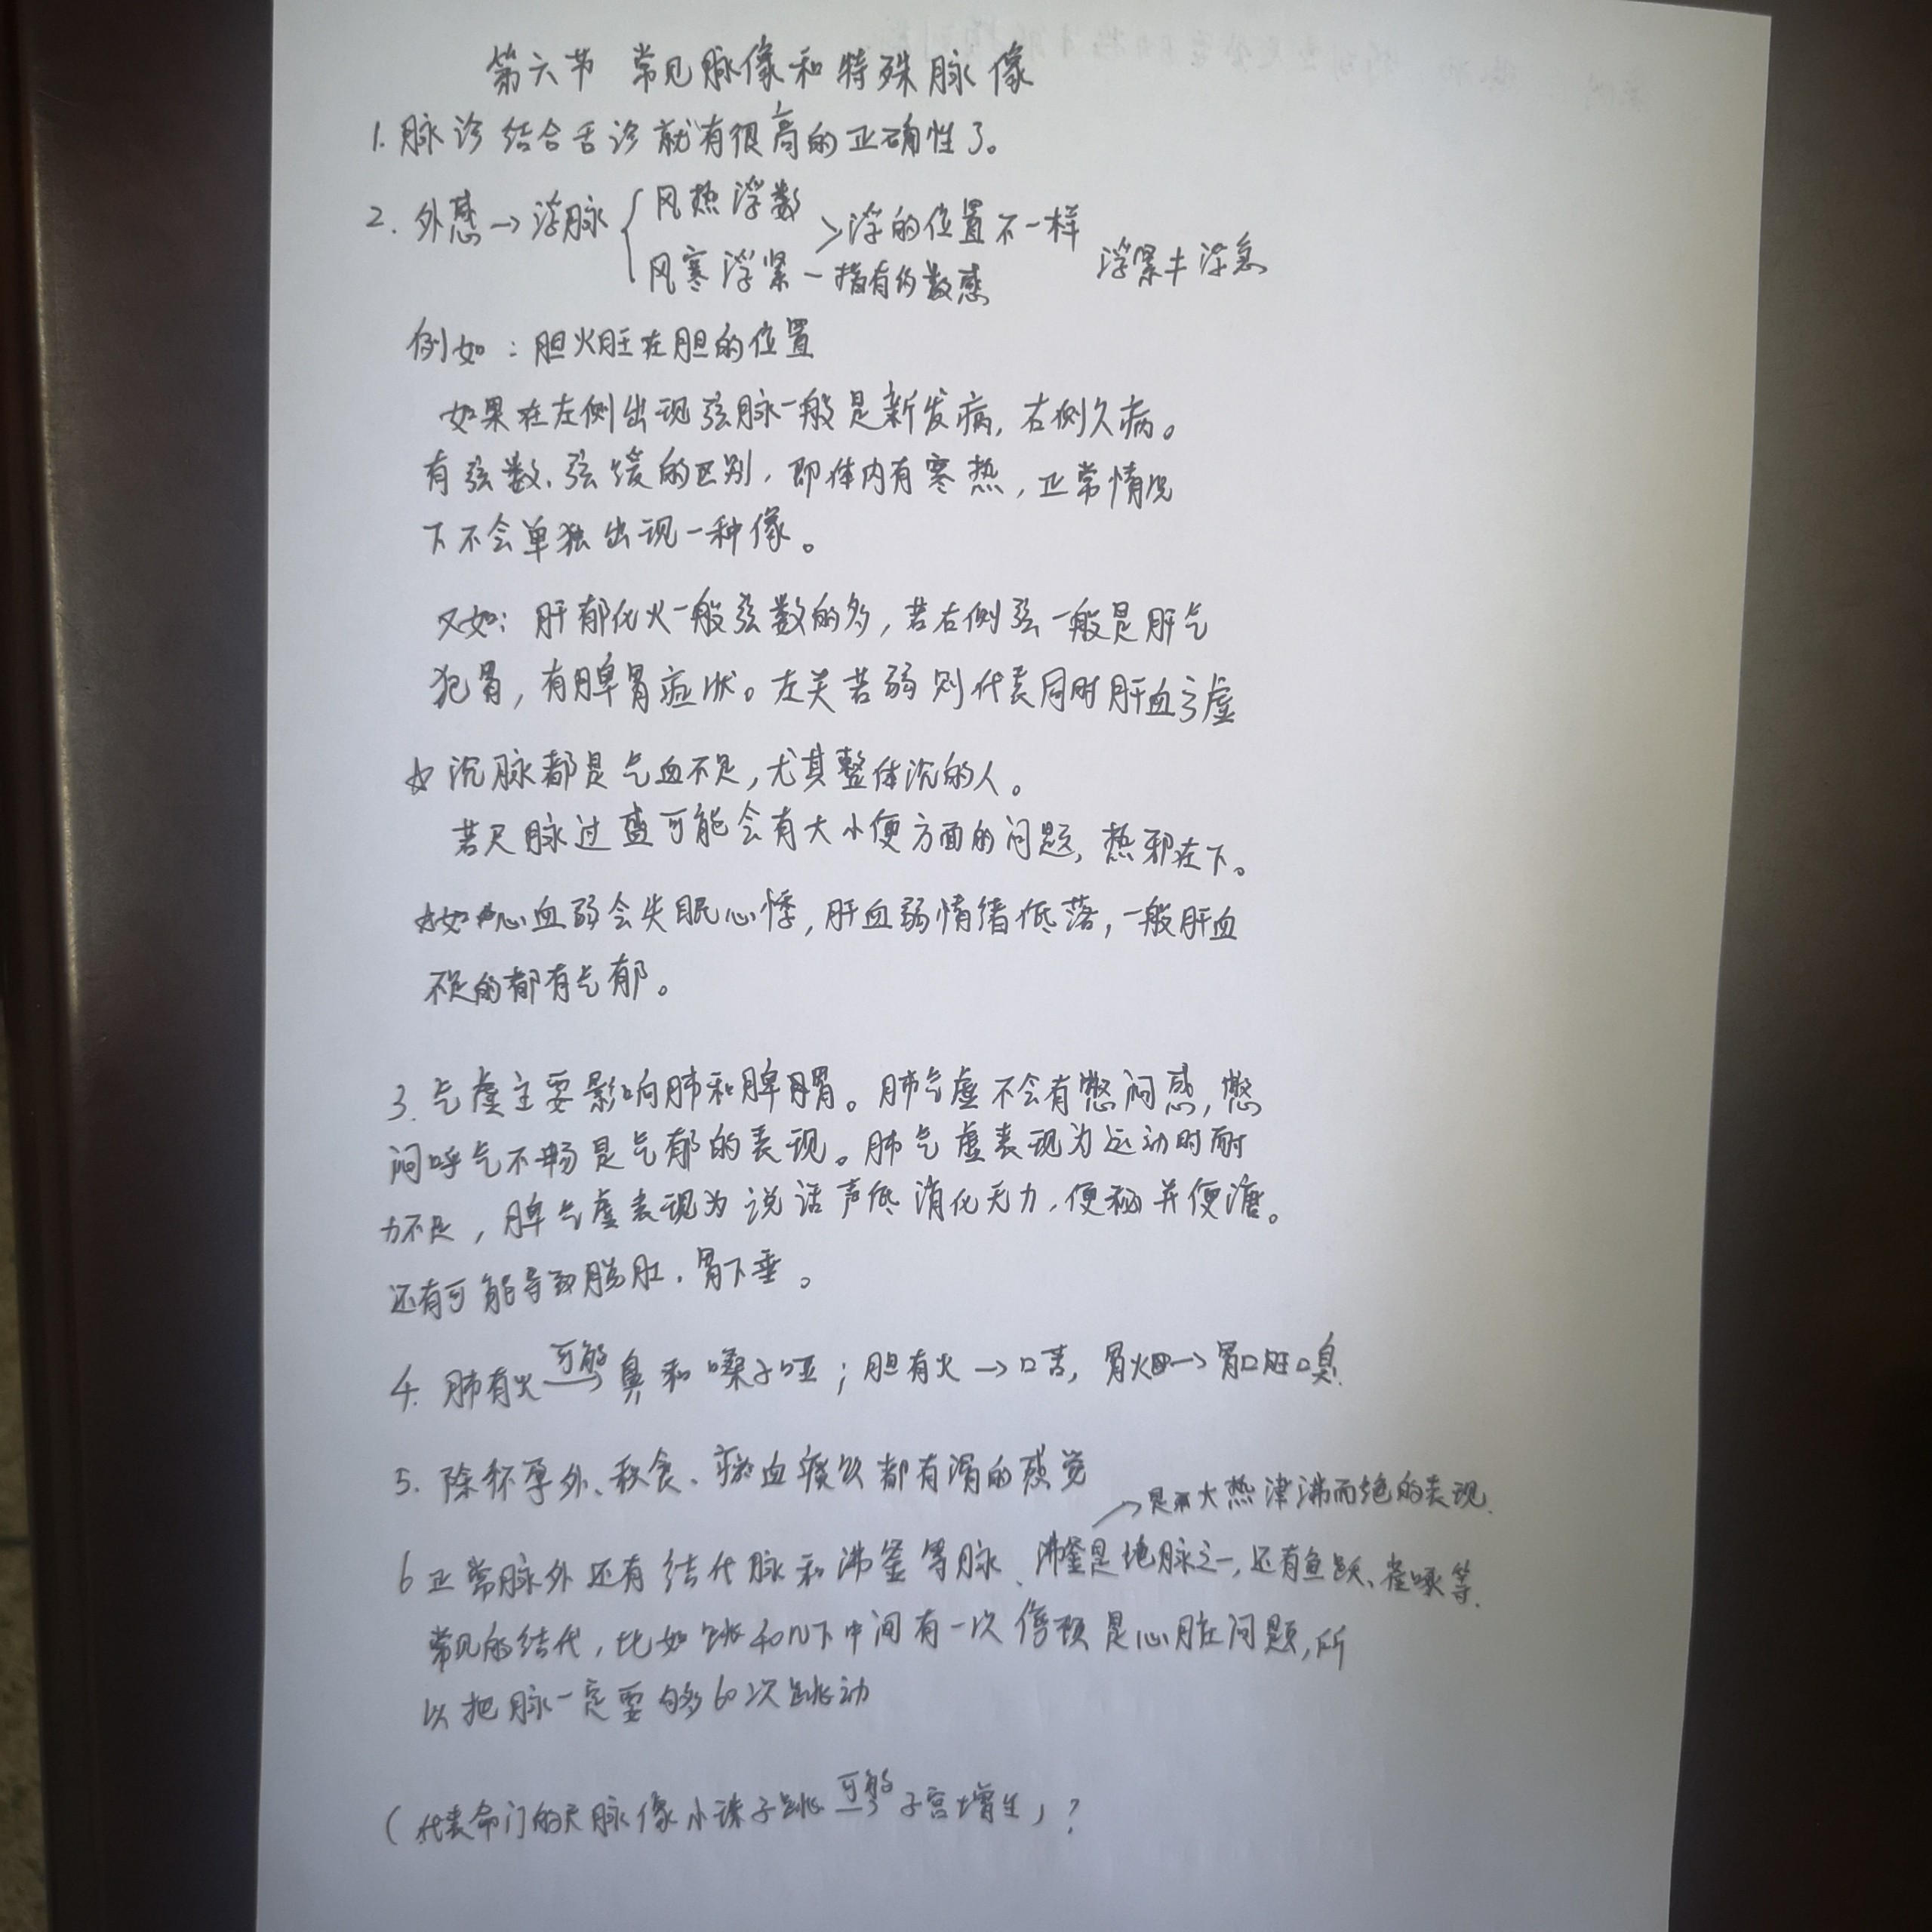 第六节 常见脉像和特殊脉像
1. 脉诊结合舌诊就有很高的正确性了。
2. 外感→浮脉{风热浮数 >浮的位置不一样
风寒浮紧-指有约数感 浮紧≠浮急
例如：胆火旺在胆的位置
如果在左侧出现弦脉一般是新发病，右侧久病。
有弦数、弦缓的区别，即体内有寒热，正常情况
下不会单独出现一种像。
又如：肝郁化火一般弦数的多，若右侧弦一般是肝气
犯胃，有脾胃症状。左关若弱则代表同时肝血亏虚
☆沉脉都是气血不足，尤其整体沉的人。
若尺脉过盛可能会有大小便方面的问题，热邪在下。
☆如心血弱会失眠心悸，肝血弱情绪低落，一般肝血
不足的都有气郁。
3. 气虚主要影响肺和脾胃。肺气虚不会有憋闷感，憋
闷呼气不畅是气郁的表现。肺气虚表现为运动时耐
力不足，脾气虚表现为说话声低消化无力，便秘并便溏。
还有可能导致脱肛、胃下垂。
4. 肺有火 可能→ 鼻和嗓子哑；胆有火→口苦，胃火→胃口旺口臭.
5. 除怀孕外、积食、瘀血痰饮都有滑的感觉
→是 大热津沸而绝的表现.
6 正常脉外还有结代脉和沸釜等脉、沸釜是绝脉之一，还有鱼跃、雀啄等.
常见的结代，比如跳40几下中间有一次停顿是心脏问题，所
以把脉一定要够60次跳动
（代表命门的尺脉像小珠子跳 可能→ 子宫增生）？